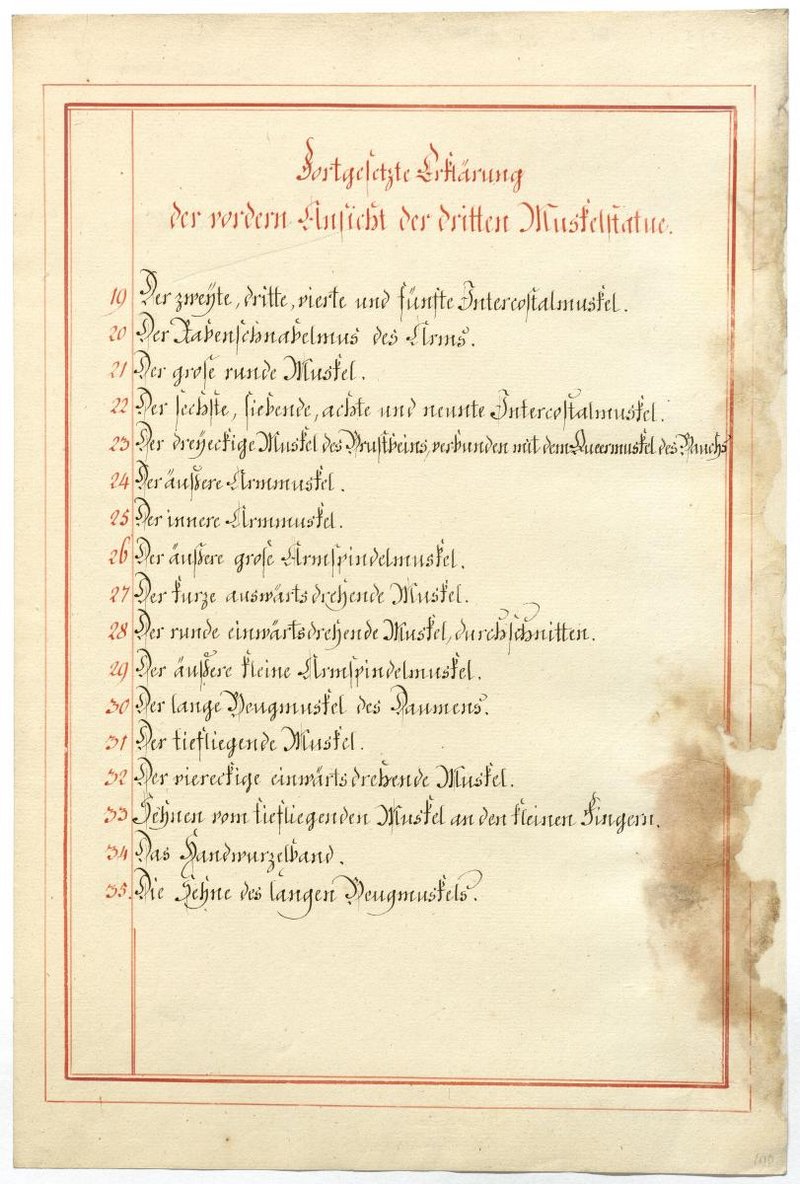 Fortgesetzte Erklärung
der vordern Ansicht der dritten Muskelstatue.
19 Der zweÿte, dritte, vierte und fünfte Intercostalmuskel.
20 Der Rabenschnabelmus des Arms.
21 Der grose runde Muskel.
22 Der sechste, siebende, achte und neunte Intercostalmuskel.
23 Der dreÿeckige Muskel des Brustbeins, verbunden mit dem Queermuskel des Bauchs
24 Der äußere Armmuskel.
25 Der innere Armmuskel.
26 Der äußere grose Armspindelmuskel.
27 Der kurze auswärtsdrehende Muskel.
28 Der runde einwärtsdrehende Muskel, durchschnitten.
29 Der äußere kleine Armspindelmuskel.
30 Der lange Beugmuskel des Daumens.
31 Der tiefliegende Muskel.
32 Der viereckige einwärtsdrehende Muskel.
33 Sehnen vom tiefliegenden Muskel an den kleinen Fingern.
34 Das Handwurzelband.
35. Die Sehne des langen Beugmuskels.